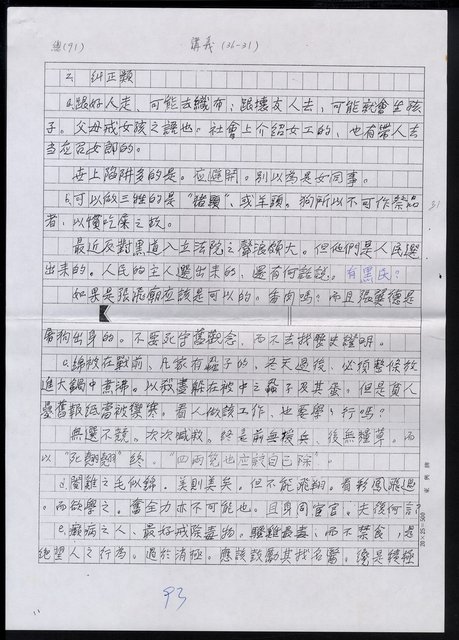 總(91)
講義(36-31)
2. 糾正類
a.跟好人走、可能去織布；跟壞女人去，可能就會生孩
子。父母戒女孩之語也。社會上介紹女工的、也有帶人去
当应召女郎的。
世上陷阱多的是。应避開。別以為是女同事。
31
b.可以做三牲的是"豬頭"、或羊頭。狗所以不可作祭品
者，以慣吃屎之故。
最近反對黑道入立法院之聲浪頗大。但他們是人民選
出来的。人民的主人選出来的、還有何話說。有黑民？
如果是張飛廟应該是可以的。香肉嗎？而且張翼德是
屠狗出身的。不要死守舊觀念，而不去找歷史證明。
c.綿被在戰前、凡家有蝨子的、冬天過後、必須整條放
進大鍋中煮沸。以殺盡躲在被中之蝨子及其蛋。但是貧人
疊舊報紙當被
看人做該工作、也要學行嗎？
無選不競。次次喊救。終是前無援兵、後無糧草。而
以"死翹翹"終。"四兩笼也应該自己除"。
d.閹雞之毛似錦。美則美矣。但不能飛翔。看彩鳳飛過
而欲學之。奮全力亦不可能也。且身同宦官。夫復何言
e.癩病之人、最好戒除毒物。騷雞最毒、而不禁食，是
絕望人之行為。過於消極。應該鼓勵其找名醫，總是積極
25×25=500
93